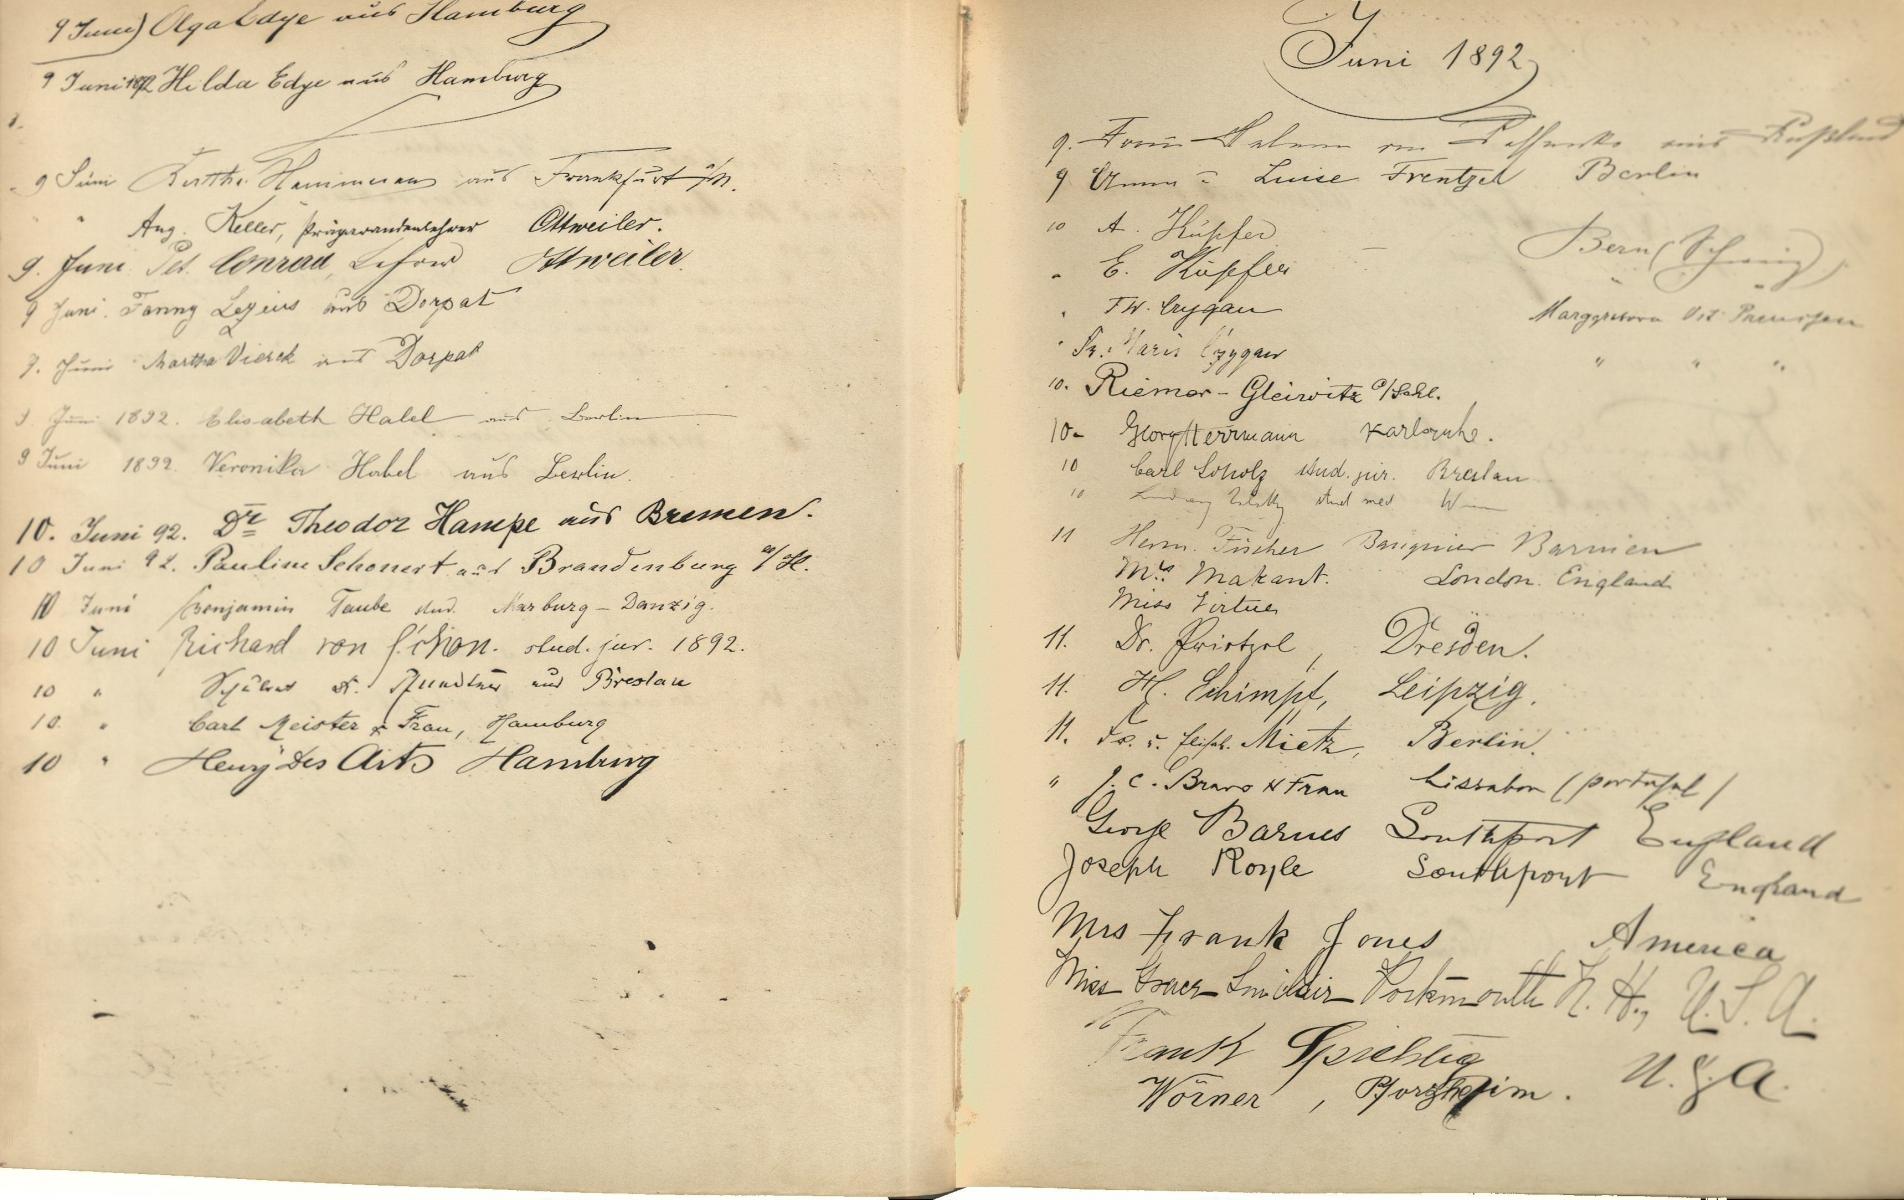 9 Juni) Olga Edye aus Hamburg
9 Juni 1892 Hilda Edye aus Hamburg
9 Juni Hammeran aus Frankfurt a/M.
" Aug. Keller, Präparandenlehrer Ottweiler.
9. Juni Pet. Conrad, Lehrer Ottweiler.
9 Juni. Fanny Lezius aus Dorpat
9. Juni Martha Vierck aus Dorpat
9 Juni 1892. Elisabeth Habel aus Berlin
9 Juni 1892. Veronika Habel aus Berlin.
10. Juni 92. Dr Theodor Hampe aus Bremen.
10 Juni 92. Pauline Schonert aus Brandenburg a/H.
10 Juni Benjamin Taube stud. Marburg - Danzig.
10 Juni Richard von stud. jur. 1892.
10 " aus Breslau
10. " Carl Meister & Frau, Hamburg
10 " Henry Des Arts Hamburg
Juni 1892
9. Frau von aus Rußland
9 Anna u. Luise Frentzel Berlin
10 A. Küpfer Bern (Schweiz)
" E. Küpfer "
" Fr. W. Czygan Marggrabowa Ost Preussen
" Fr. Marie Czygan " " "
10. Riemer - Gleiwitz O/Schl.
10. Georg Herrmann Karlsruhe.
10 Carl Scholz stud. jur. Breslau
10 stud med
11 Herm. Fischer Banquier Barmen
Mrs Makant. London. England
Miss Virtue
11. Dr. Pristzel, Dresden.
11. H. Schimpf, Leipzig.
11. Fr. u. Mietz, Berlin.
" J. C. Bravo & Frau Lissabon (portugal)
George Barnes Southport England
Joseph Royle Southport England
Mrs Frank Jones America
Miss Grace Sinclair Portsmouth N. H., U. S. A.
Frank Spiehlig U. S. A.
Wörner, Pforzheim.